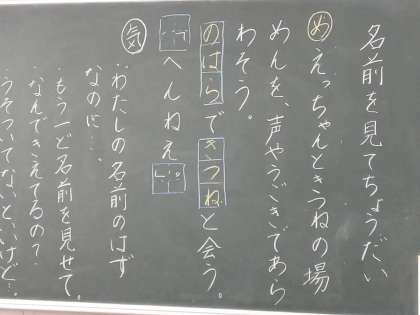 名前を見てちょうだい
めえっちゃんときつねの場
めんを、声やうごきであら
わそう。
のはらできつねと会う。
「へんねえ。」
気わたしの名前のはず
なのに…、
もう一ど名前を見せて。
なんできえてるの?
うそついてないといいけど…